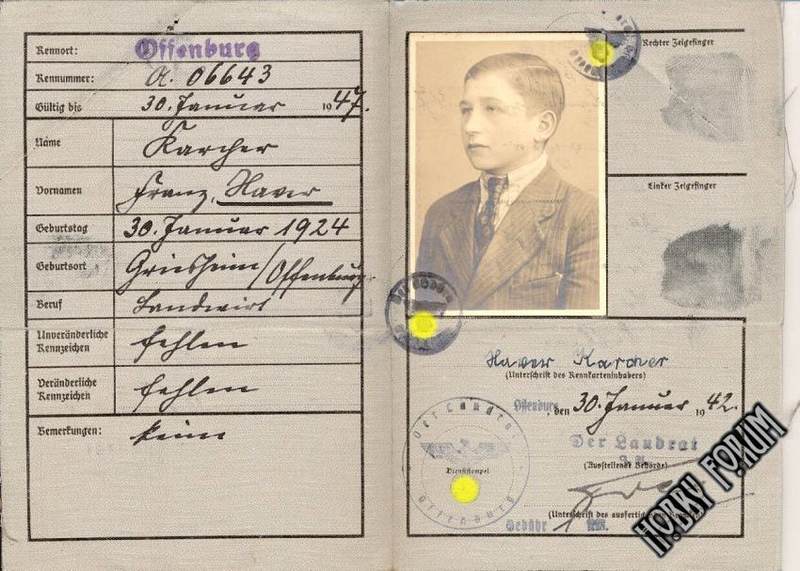 Kennort: Offenburg
Kennnummer: A. 06643
Gültig bis 30. Januar 1947.
Name Karcher
Vornamen Franz, Xaver
Geburtstag 30. Januar 1924
Geburtsort Griesheim/Offenburg.
Beruf Landwirt
Unveränderliche Kennzeichen fehlen
Veränderliche Kennzeichen fehlen
Bemerkungen: keine
Rechter Zeigefinger
Linker Zeigefinger
Xaver Karcher
(Unterschrift des Kennkarteninhabers)
Offenburg, den 30. Januar 1942.
Der Landrat
(Ausstellende Behörde)
Der Landrat
Dienststempel
Offenburg
(Unterschrift des ausfertigenden
Gebühr 1 RM.
HOBBY FORUM